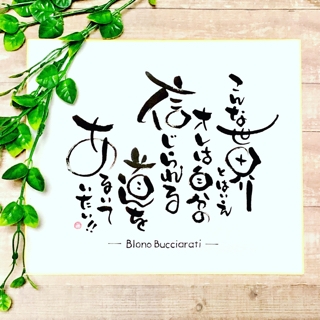 こんな世界
とはいえ
オレは自分の
信じられる
道を
あるいて
いたい!!
Blono Bucciarati